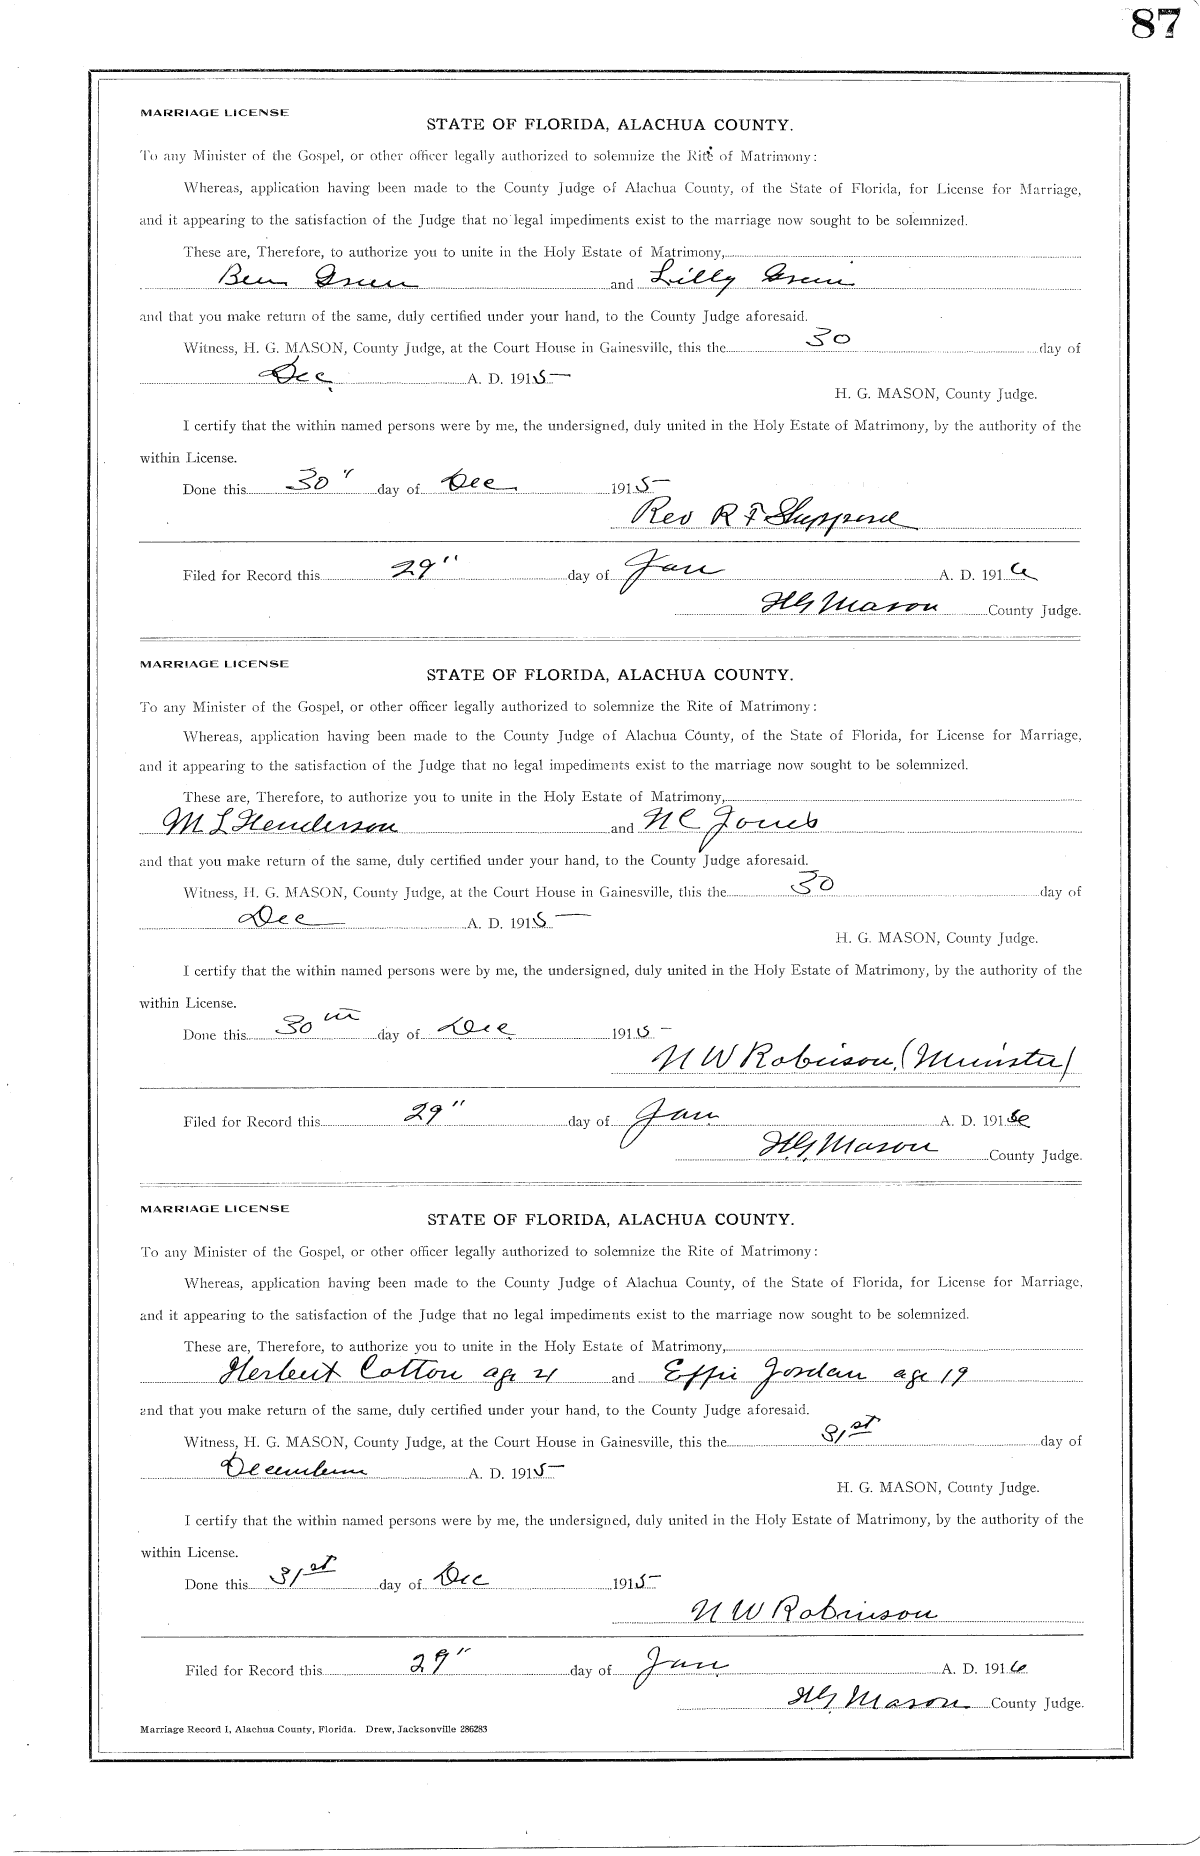 87
MARRIAGE LICENSE
STATE OF FLORIDA, ALACHUA COUNTY.
To any Minister of the Gospel, or other officer legally authorized to solemnize the Rite of Matrimony:
Whereas, application having been made to the County Judge of Alachua County, of the State of Florida, for License for Marriage,
and it appearing to the satisfaction of the Judge that no legal impediments exist to the marriage now sought to be solemnized.
These are, Therefore, to authorize you to unite in the Holy Estate of Matrimony,
Ben Green and Lilly Green
and that you make return of the same, duly certified under your hand, to the County Judge aforesaid.
Witness, H. G. MASON, County Judge, at the Court House in Gainesville, this the 30 day of
Dec A. D. 1915
H. G. MASON, County Judge.
I certify that the within named persons were by me, the undersigned, duly united in the Holy Estate of Matrimony, by the authority of the
within License.
Done this 30" day of Dec 1915
Rev R F Shepperd
Filed for Record this 29" day of Jan A. D. 1916
H G Mason County Judge.
MARRIAGE LICENSE
STATE OF FLORIDA, ALACHUA COUNTY.
To any Minister of the Gospel, or other officer legally authorized to solemnize the Rite of Matrimony:
Whereas, application having been made to the County Judge of Alachua County, of the State of Florida, for License for Marriage,
and it appearing to the satisfaction of the Judge that no legal impediments exist to the marriage now sought to be solemnized.
These are, Therefore, to authorize you to unite in the Holy Estate of Matrimony,
M L Henderson and N C Jones
and that you make return of the same, duly certified under your hand, to the County Judge aforesaid.
Witness, H. G. MASON, County Judge, at the Court House in Gainesville, this the 30 day of
Dec A. D. 1915
H. G. MASON, County Judge.
I certify that the within named persons were by me, the undersigned, duly united in the Holy Estate of Matrimony, by the authority of the
within License.
Done this 30th day of Dec 1915
N W Robinson, (Minister)
Filed for Record this 29" day of Jan A. D. 1916
H. G. Mason County Judge.
MARRIAGE LICENSE
STATE OF FLORIDA, ALACHUA COUNTY.
To any Minister of the Gospel, or other officer legally authorized to solemnize the Rite of Matrimony:
Whereas, application having been made to the County Judge of Alachua County, of the State of Florida, for License for Marriage,
and it appearing to the satisfaction of the Judge that no legal impediments exist to the marriage now sought to be solemnized.
These are, Therefore, to authorize you to unite in the Holy Estate of Matrimony,
Herbert Cotton age 21 and Effie Jordan age 19
and that you make return of the same, duly certified under your hand, to the County Judge aforesaid.
Witness, H. G. MASON, County Judge, at the Court House in Gainesville, this the 31st day of
December A. D. 1915
H. G. MASON, County Judge.
I certify that the within named persons were by me, the undersigned, duly united in the Holy Estate of Matrimony, by the authority of the
within License.
Done this 31st day of Dec 1915
N W Robinson
Filed for Record this 29" day of Jan A. D. 1916
H G Mason County Judge.
Marriage Record I, Alachua County, Florida. Drew, Jacksonville 286283